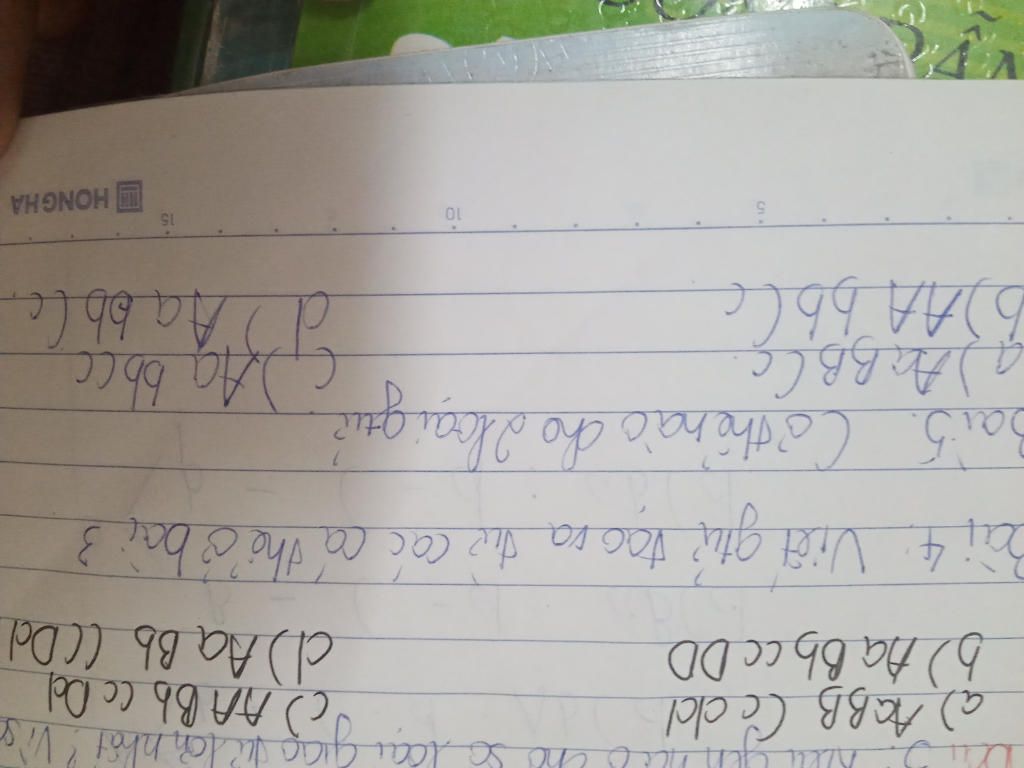 3: Kiểu gen nào cho số loại giao tử lớn nhất? Vì s
a) AaBB Ccdd c) AABb ccDd
b) AaBb ccDD d) AaBb CCDd
Bài 4: Viết gtử tạo ra từ các cá thể ở bài 3
Bài 5: Cơ thể nào cho 2 loại gtử
a) AaBBCc c) Aa bbcc
b) AA bbCc d) Aa bb Cc
5 10 15 HONGHA